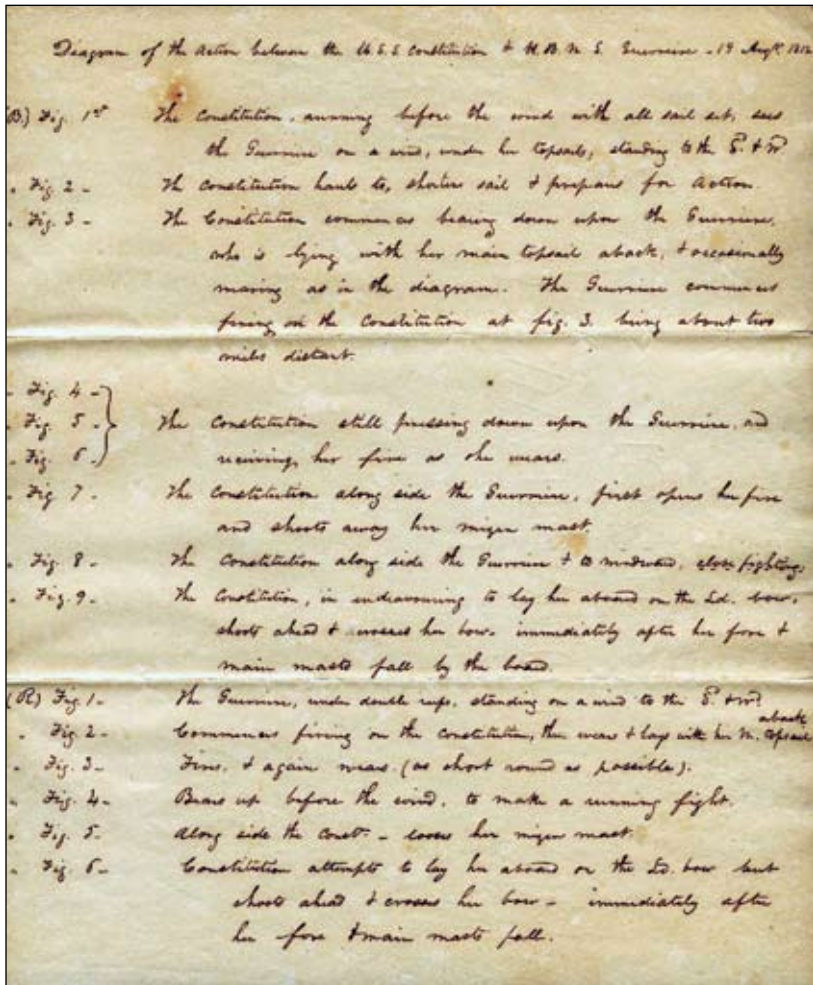 Diagram of the Action between the U.S.S Constitution & H.B.M S. Guerriere - 19 Augt. 1812
(B.) Fig. 1st The Constitution, running before the wind with all sail set, sees
the Guerriere on a wind, under her topsails, standing to the Sd. & Wd.
" Fig 2 - The Constitution hauls to, shortens sail & prepares for Action.
" Fig. 3 - The Constitution commences bearing down upon the Guerriere,
who is lying with her main topsail aback, & occasionally
wearing as in the diagram. The Guerriere commences
firing on the Constitution at fig. 3. being about two
miles distant.
" Fig. 4 -
" Fig. 5 - The Constitution still pressing down upon the Guerriere, and
" Fig. 6 - receiving her fire as she wears.
" Fig 7 - The Constitution along side the Guerriere, first opens her fire
and shoots away her mizen mast.
" Fig. 8 - The Constitution along side the Guerriere & to windward, close fighting.
" Fig. 9 - The Constitution, in endeavouring to lay her aboard on the Ld. bow,
shoots ahead & crosses her bow, immediately after her fore &
main masts fall by the board.
(R) Fig. 1 - The Guerriere, under double reefs, standing on a wind to the Sd. & Wd.
" Fig. 2 - Commences firing on the Constitution, then wears & lays with her M. topsail aback
" Fig. 3 - Fires, & again wears (as short round as possible).
" Fig. 4 - Bears up before the wind, to make a running fight.
" Fig. 5 - Along side the Const. - looses her mizen mast.
" Fig. 6 - Constitution attempts to lay her aboard on the Ld. bow but
shoots ahead & crosses her bow - immediately after
her fore & main masts fall.